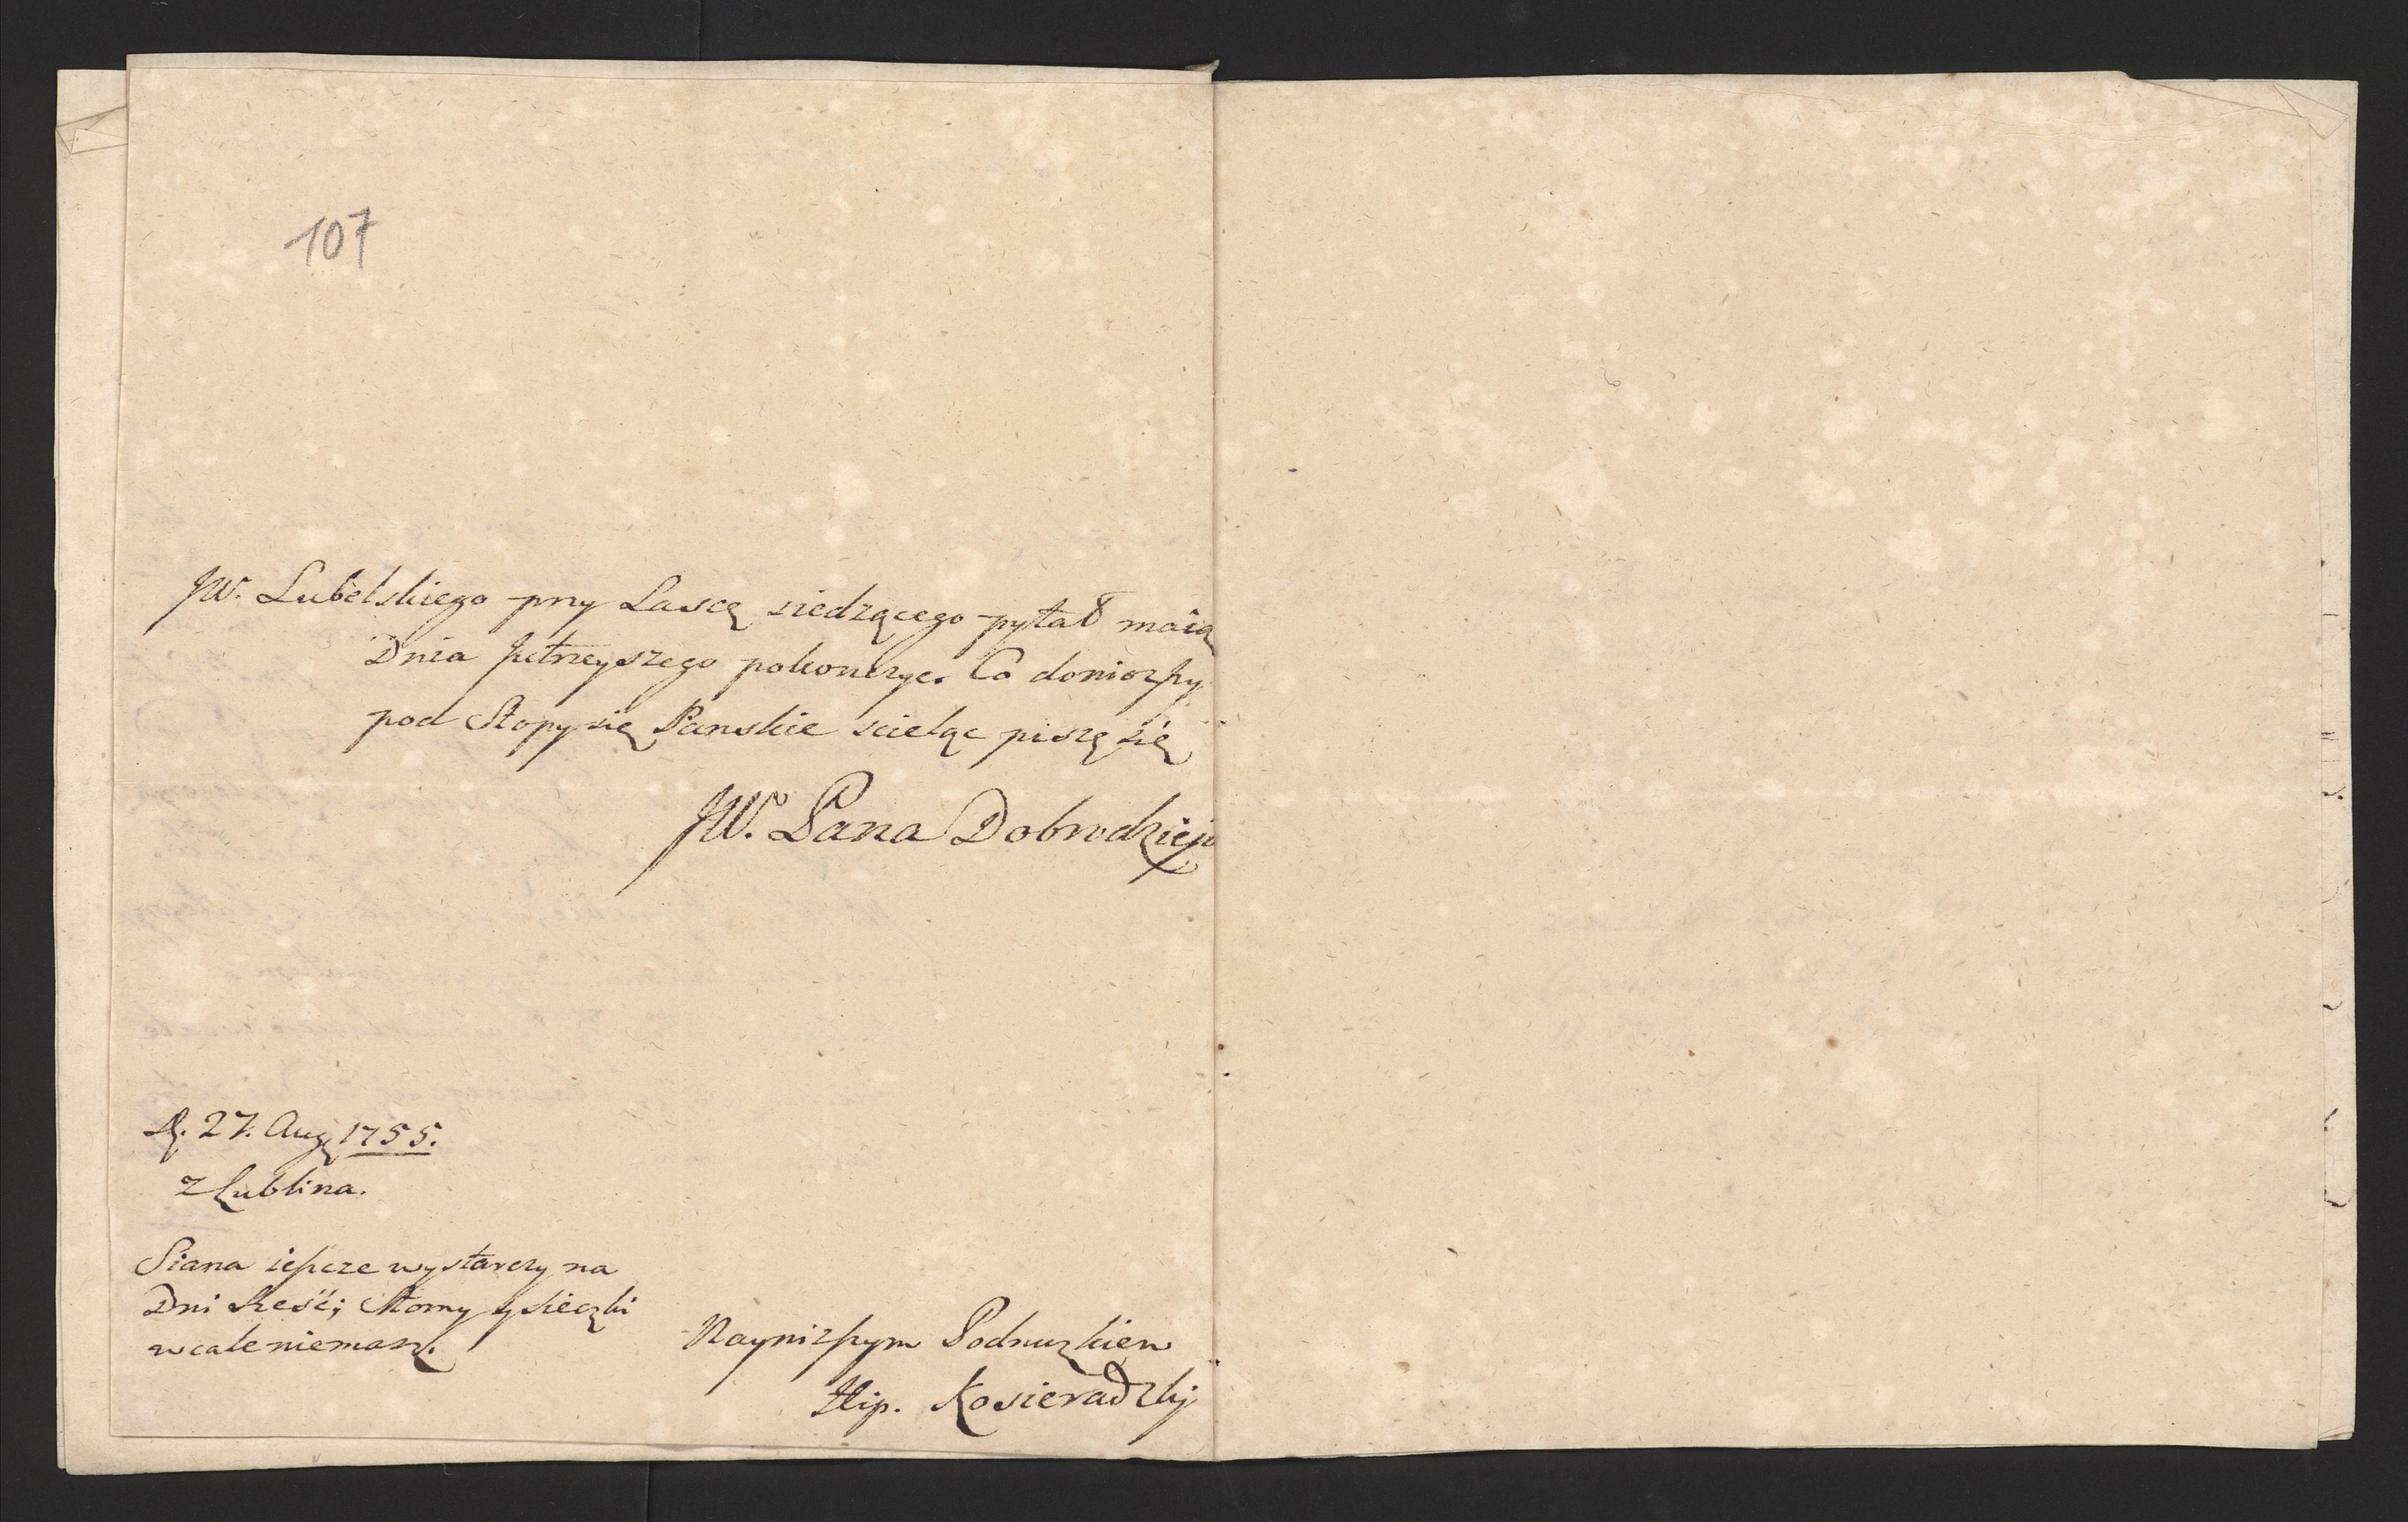 107
JW. Lubelskiego przy Lascę siedzącego pytał maią
Dnia Jutrzeyszego pokonczyc. Co donioszy
pod Stopy się Panskie scieląc piszę się
JW. Pana Dobrodzieja
D. 27. Aug. 1755.
z Lublina.
Siana ieszcze wystarczy na
Dni szesć; Słomy y sieczki
wcale niemasz.
Naynizszym Podnuzkiem
Hip. Kosieradzkj